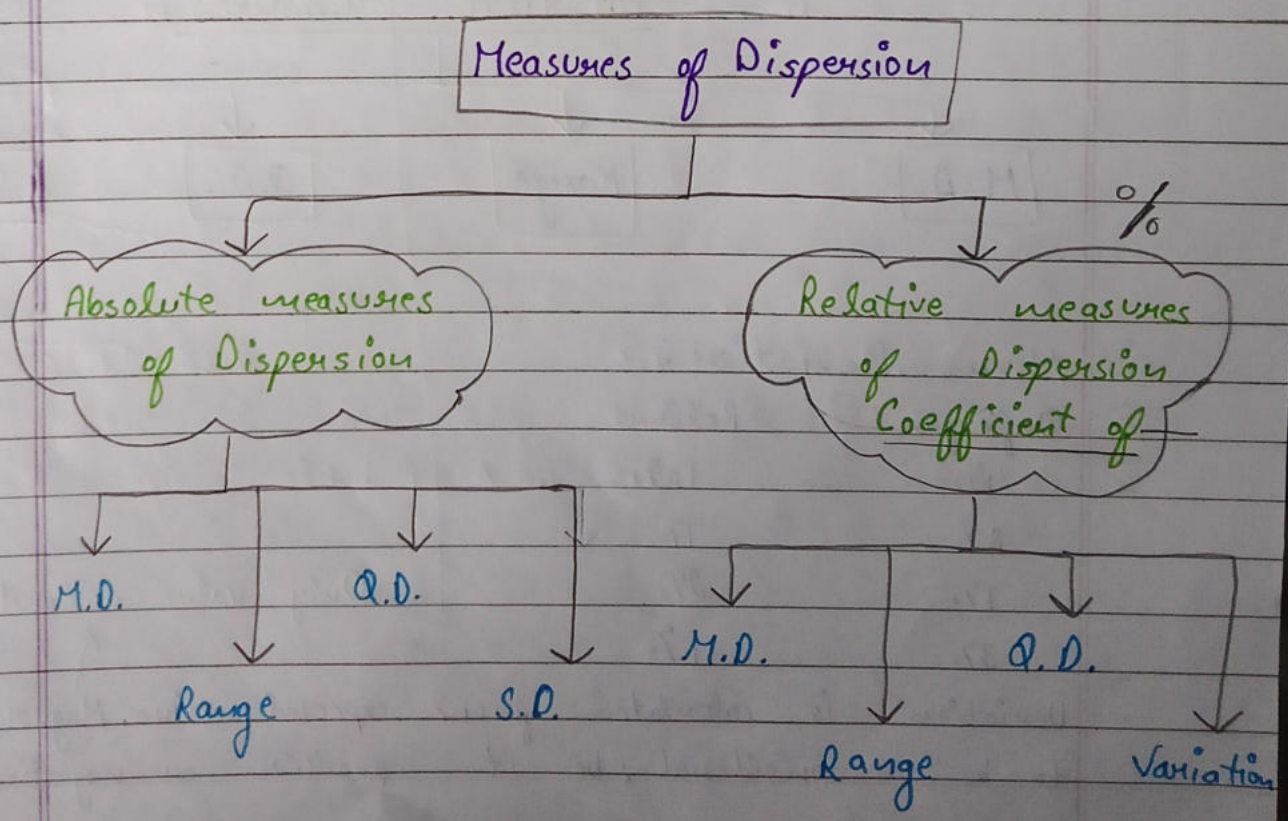 Measures of Dispersion
%
Absolute measures
of Dispersion
Relative measures
of Dispersion
Coefficient of
M.D.
Q.D.
Range
S.D.
M.D.
Q.D.
Range
Variation